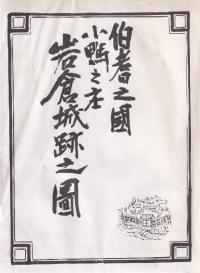 伯耆之國
小鴨之庄
岩倉城跡之圖